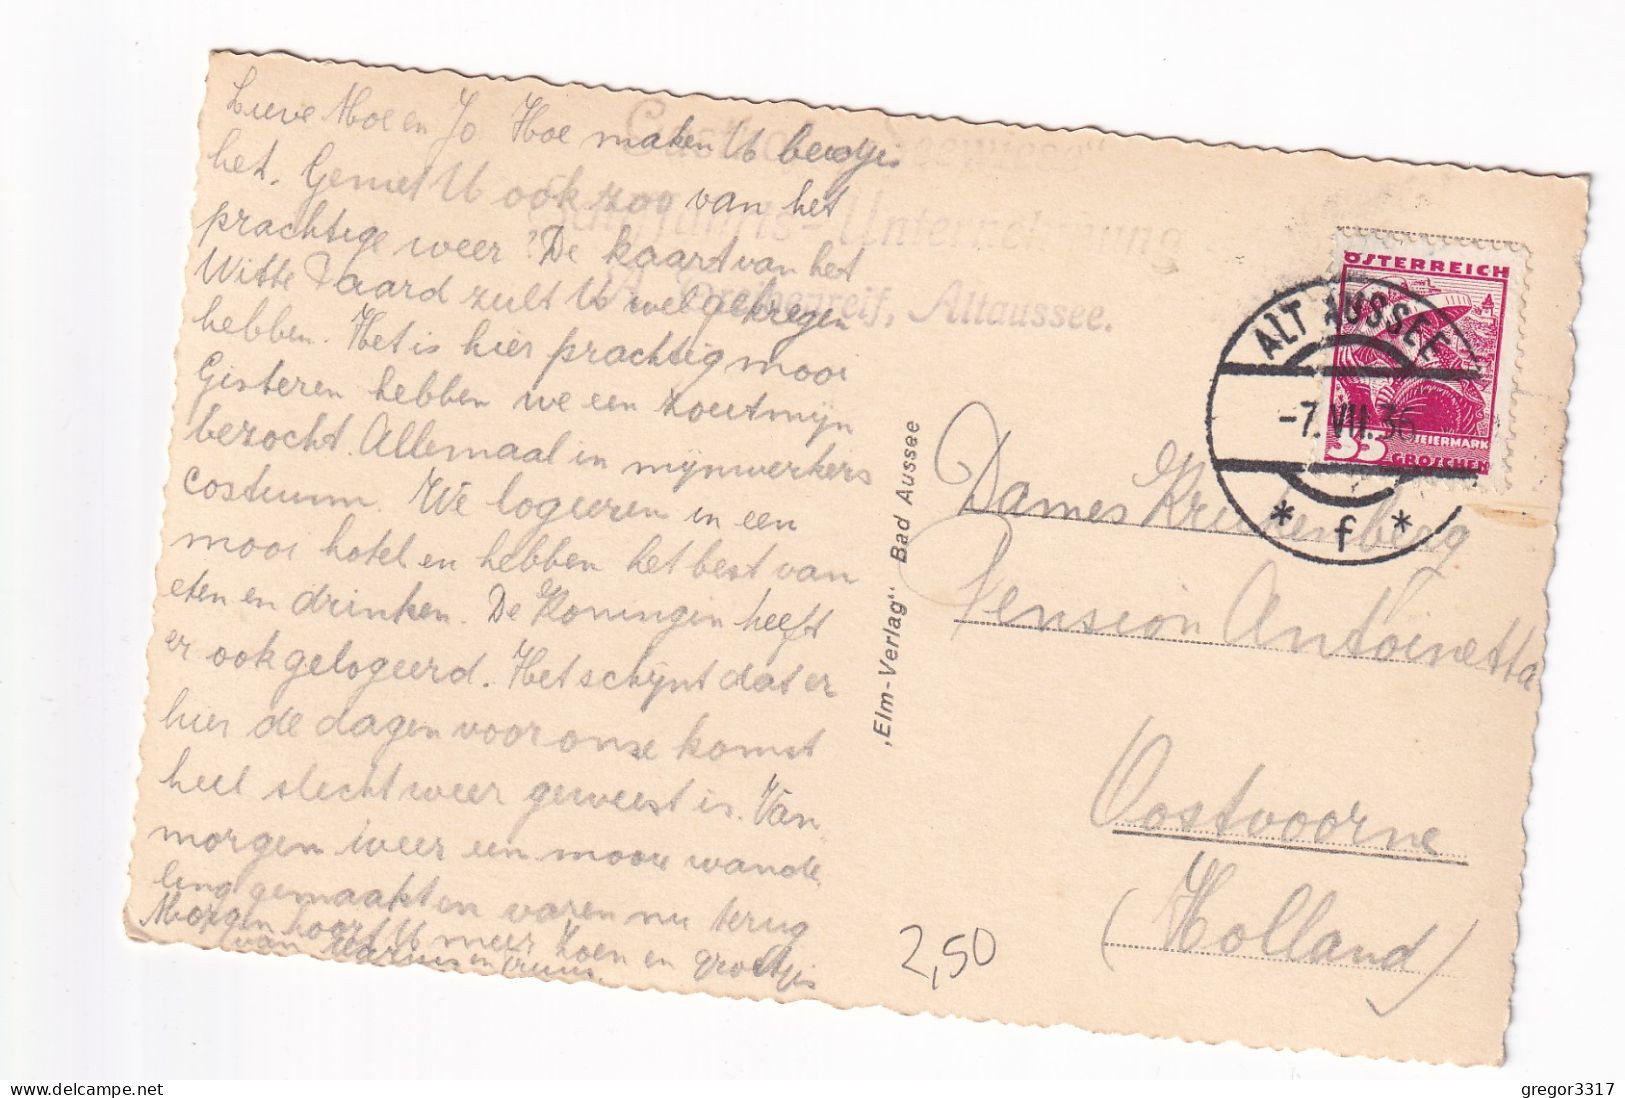 Lieve Moe en Jo Hoe maken U beidjes
het. Geniet U ook zoo van het
prachtige weer? De kaart van het
Witte Paard zult U wel gekregen
hebben. Het is hier prachtig mooi
Gisteren hebben we een zoutmijn
bezocht. Allemaal in mijnwerkers
costuum. We logeeren in een
mooi hotel en hebben het best van
eten en drinken. De Koningin heeft
er ook gelogeerd. Het schijnt dat er
hier de dagen voor onze komst
heel slecht weer geweest is. Van
morgen weer een mooie wande
ling gemaakt en waren nu terug
Morgen hoort U meer Zoen en groetjes
van Marius en
"Seewiese"
Schiffahrts-Unternehmung
Altaussee.
"Elm-Verlag" Bad Aussee
ÖSTERREICH
STEIERMARK
35 GROSCHEN
ALT AUSSEE
-7.VII.36
* f *
Dames Krukenberg
Pension Antoinetta
Oostvoorne
(Holland)
2,50
gregor3317